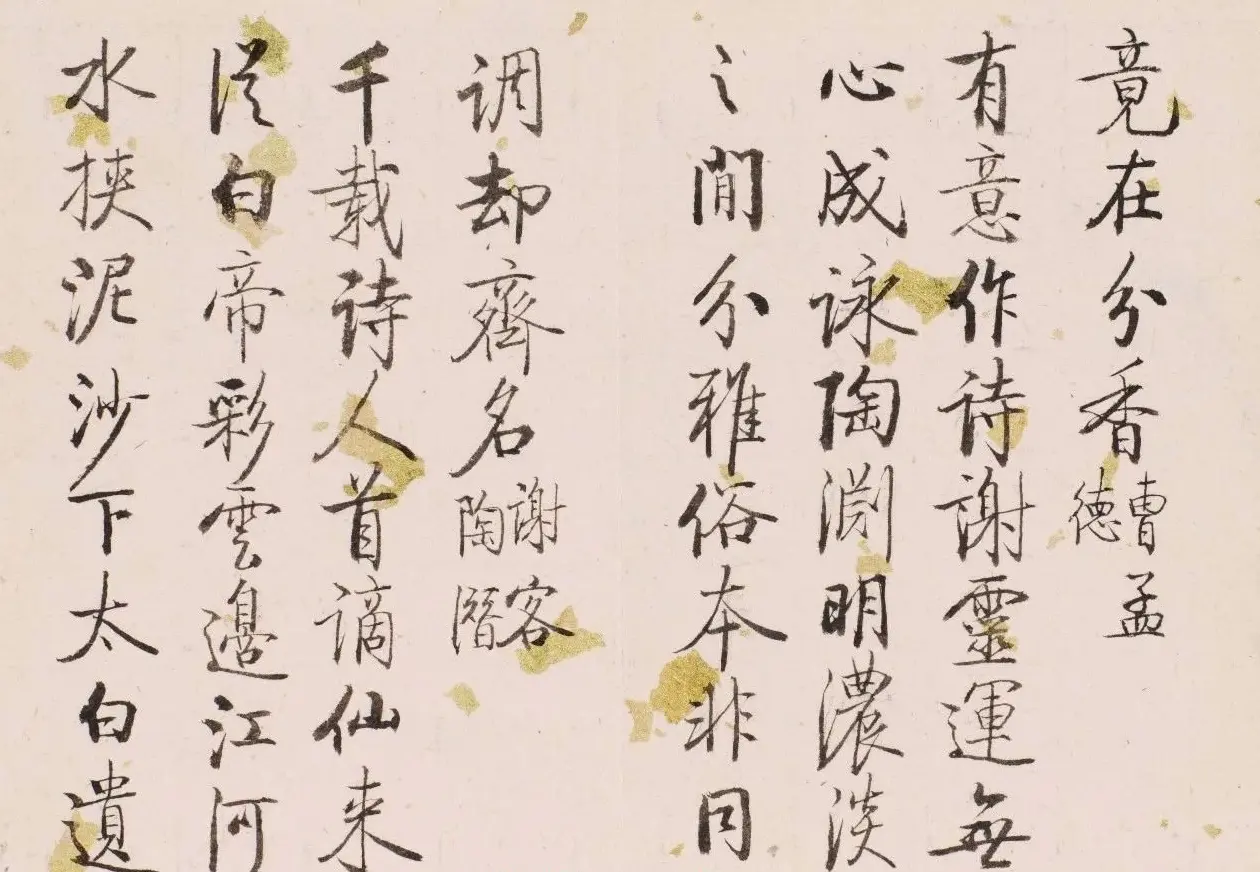 竟在分香曹孟德
有意作诗謝靈運無
心成詠陶淵明濃淡
之間分雅俗本非同
调却齊名謝客陶潛
千載诗人首謫仙来
従白帝彩雲邊江河
水挟泥沙下太白遺